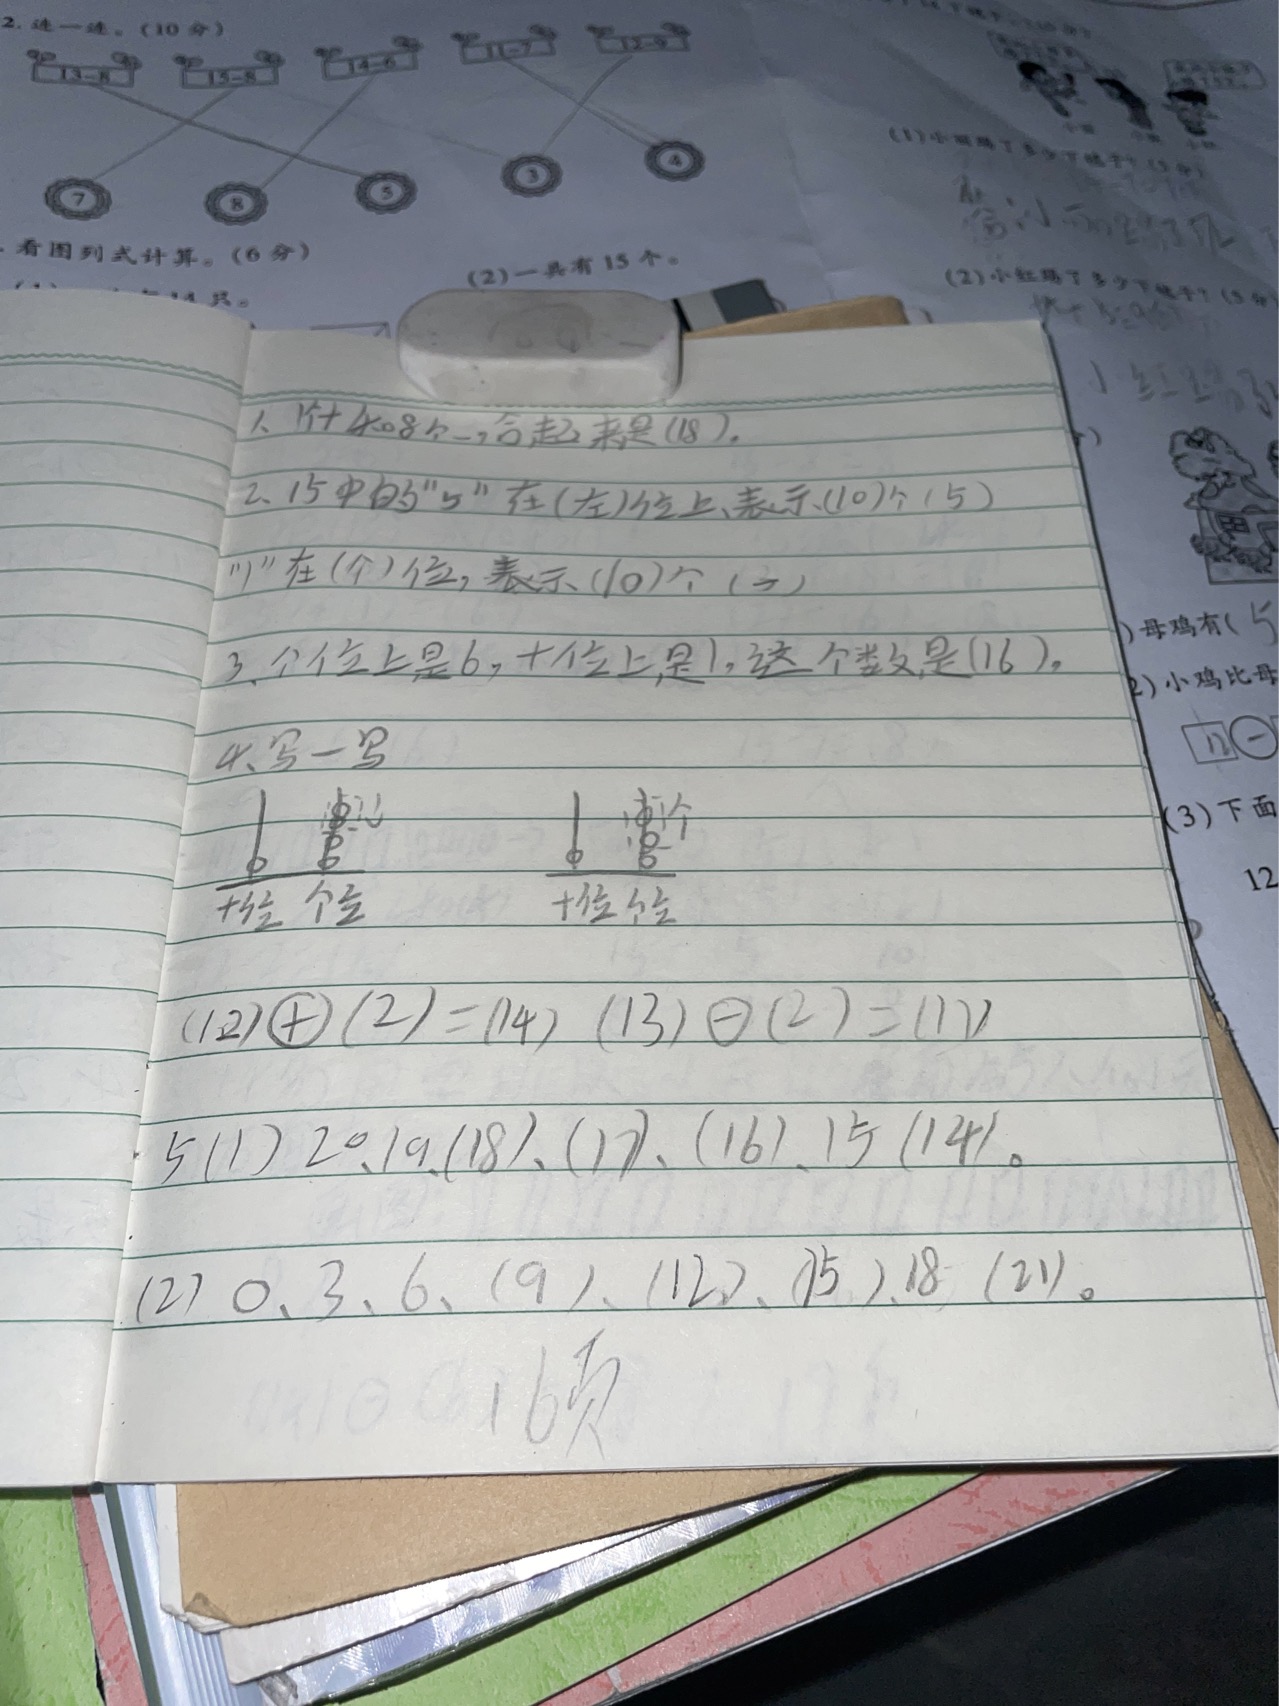 2. 连一连。(10分)
13-8 15-8 14-6 11-7 12-9
7 8 5 3 4
看图列式计算。(6分)
(2)一共有15个。
(2)小红踢了多少下毽子?(5分)
1、1个十和8个一,合起来是(18)。
2、15中的"5"在(左)位上、表示(10)个(5)
"1"在(个)位,表示(10)个(一)
3、个位上是6,十位上是1,这个数是(16)。
4、写一写
十位 个位 十位 个位
(12)⊕(2)=(14) (13)⊖(2)=(11)
5(1)20、19、(18)、(17)、(16)、15(14)。
(2)0、3、6、(9)、(12)、(15)、18(21)。
16页
)母鸡有(5
2)小鸡比母
12 -
(3)下面
12